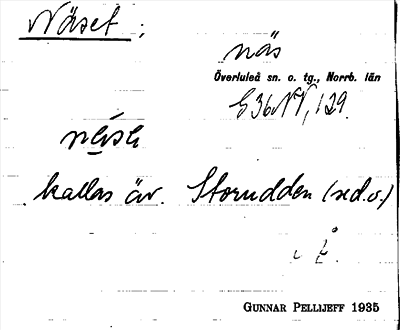 Näset ;
näs
Överluleå sn. o. tg., Norrb. län
kallas äv. Storudden (se d.o.)
GUNNAR PELLIJEFF 1935